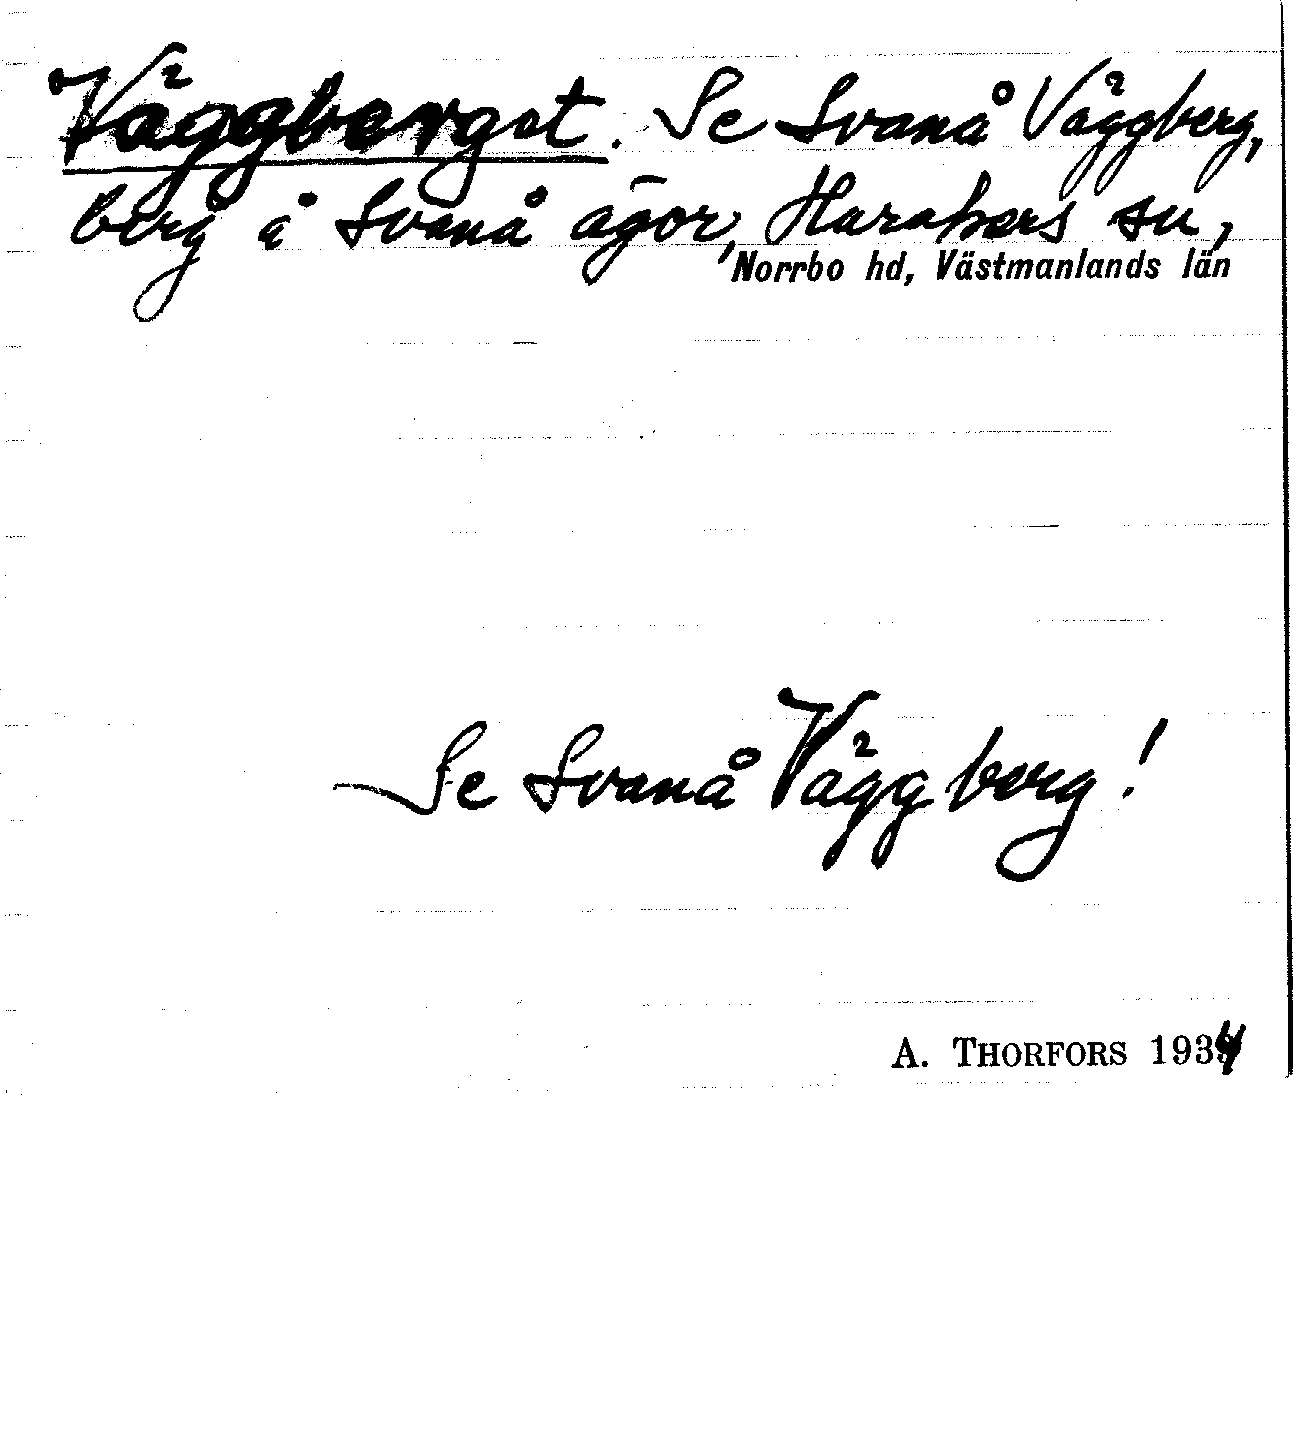 Väggberget. Se Svanå Väggberg,
berg å Svanå ägor, Harakers sn,
Norrbo hd, Västmanlands län
Se Svanå Väggberg!
A. THORFORS 1934